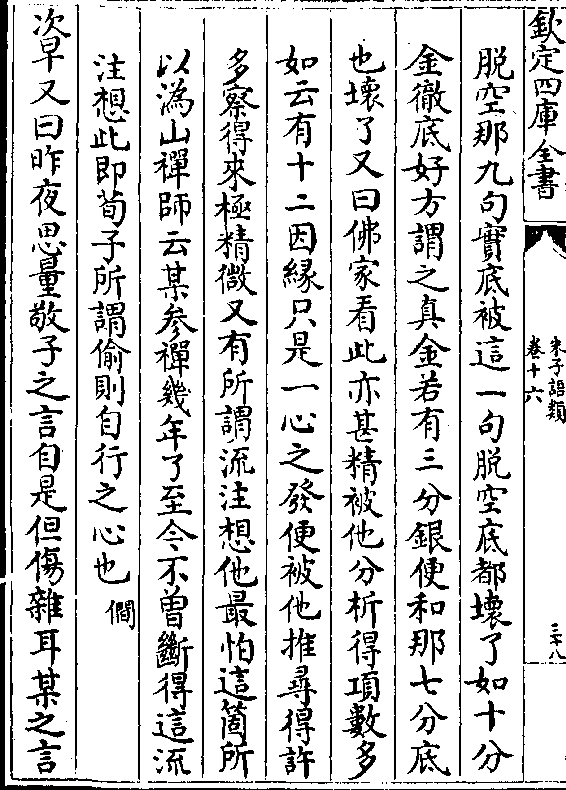 欽定四庫全書
朱子語類
卷十六
三十八
脱空那九句實底被這一句脱空底都壞了如十分
金徹底好方謂之真金若有三分銀便和那七分底
也壞了又曰佛家看此亦甚精被他分析得項數多
如云有十二因緣只是一心之發便被他推尋得許
多察得來極精微又有所謂流注想他最怕這箇所
以潙山禪師云某参禪幾年了至今不曾斷得這流
注想此即荀子所謂偷則自行之心也 僩
次早又曰昨夜思量敬子之言自是但傷雜耳某之言